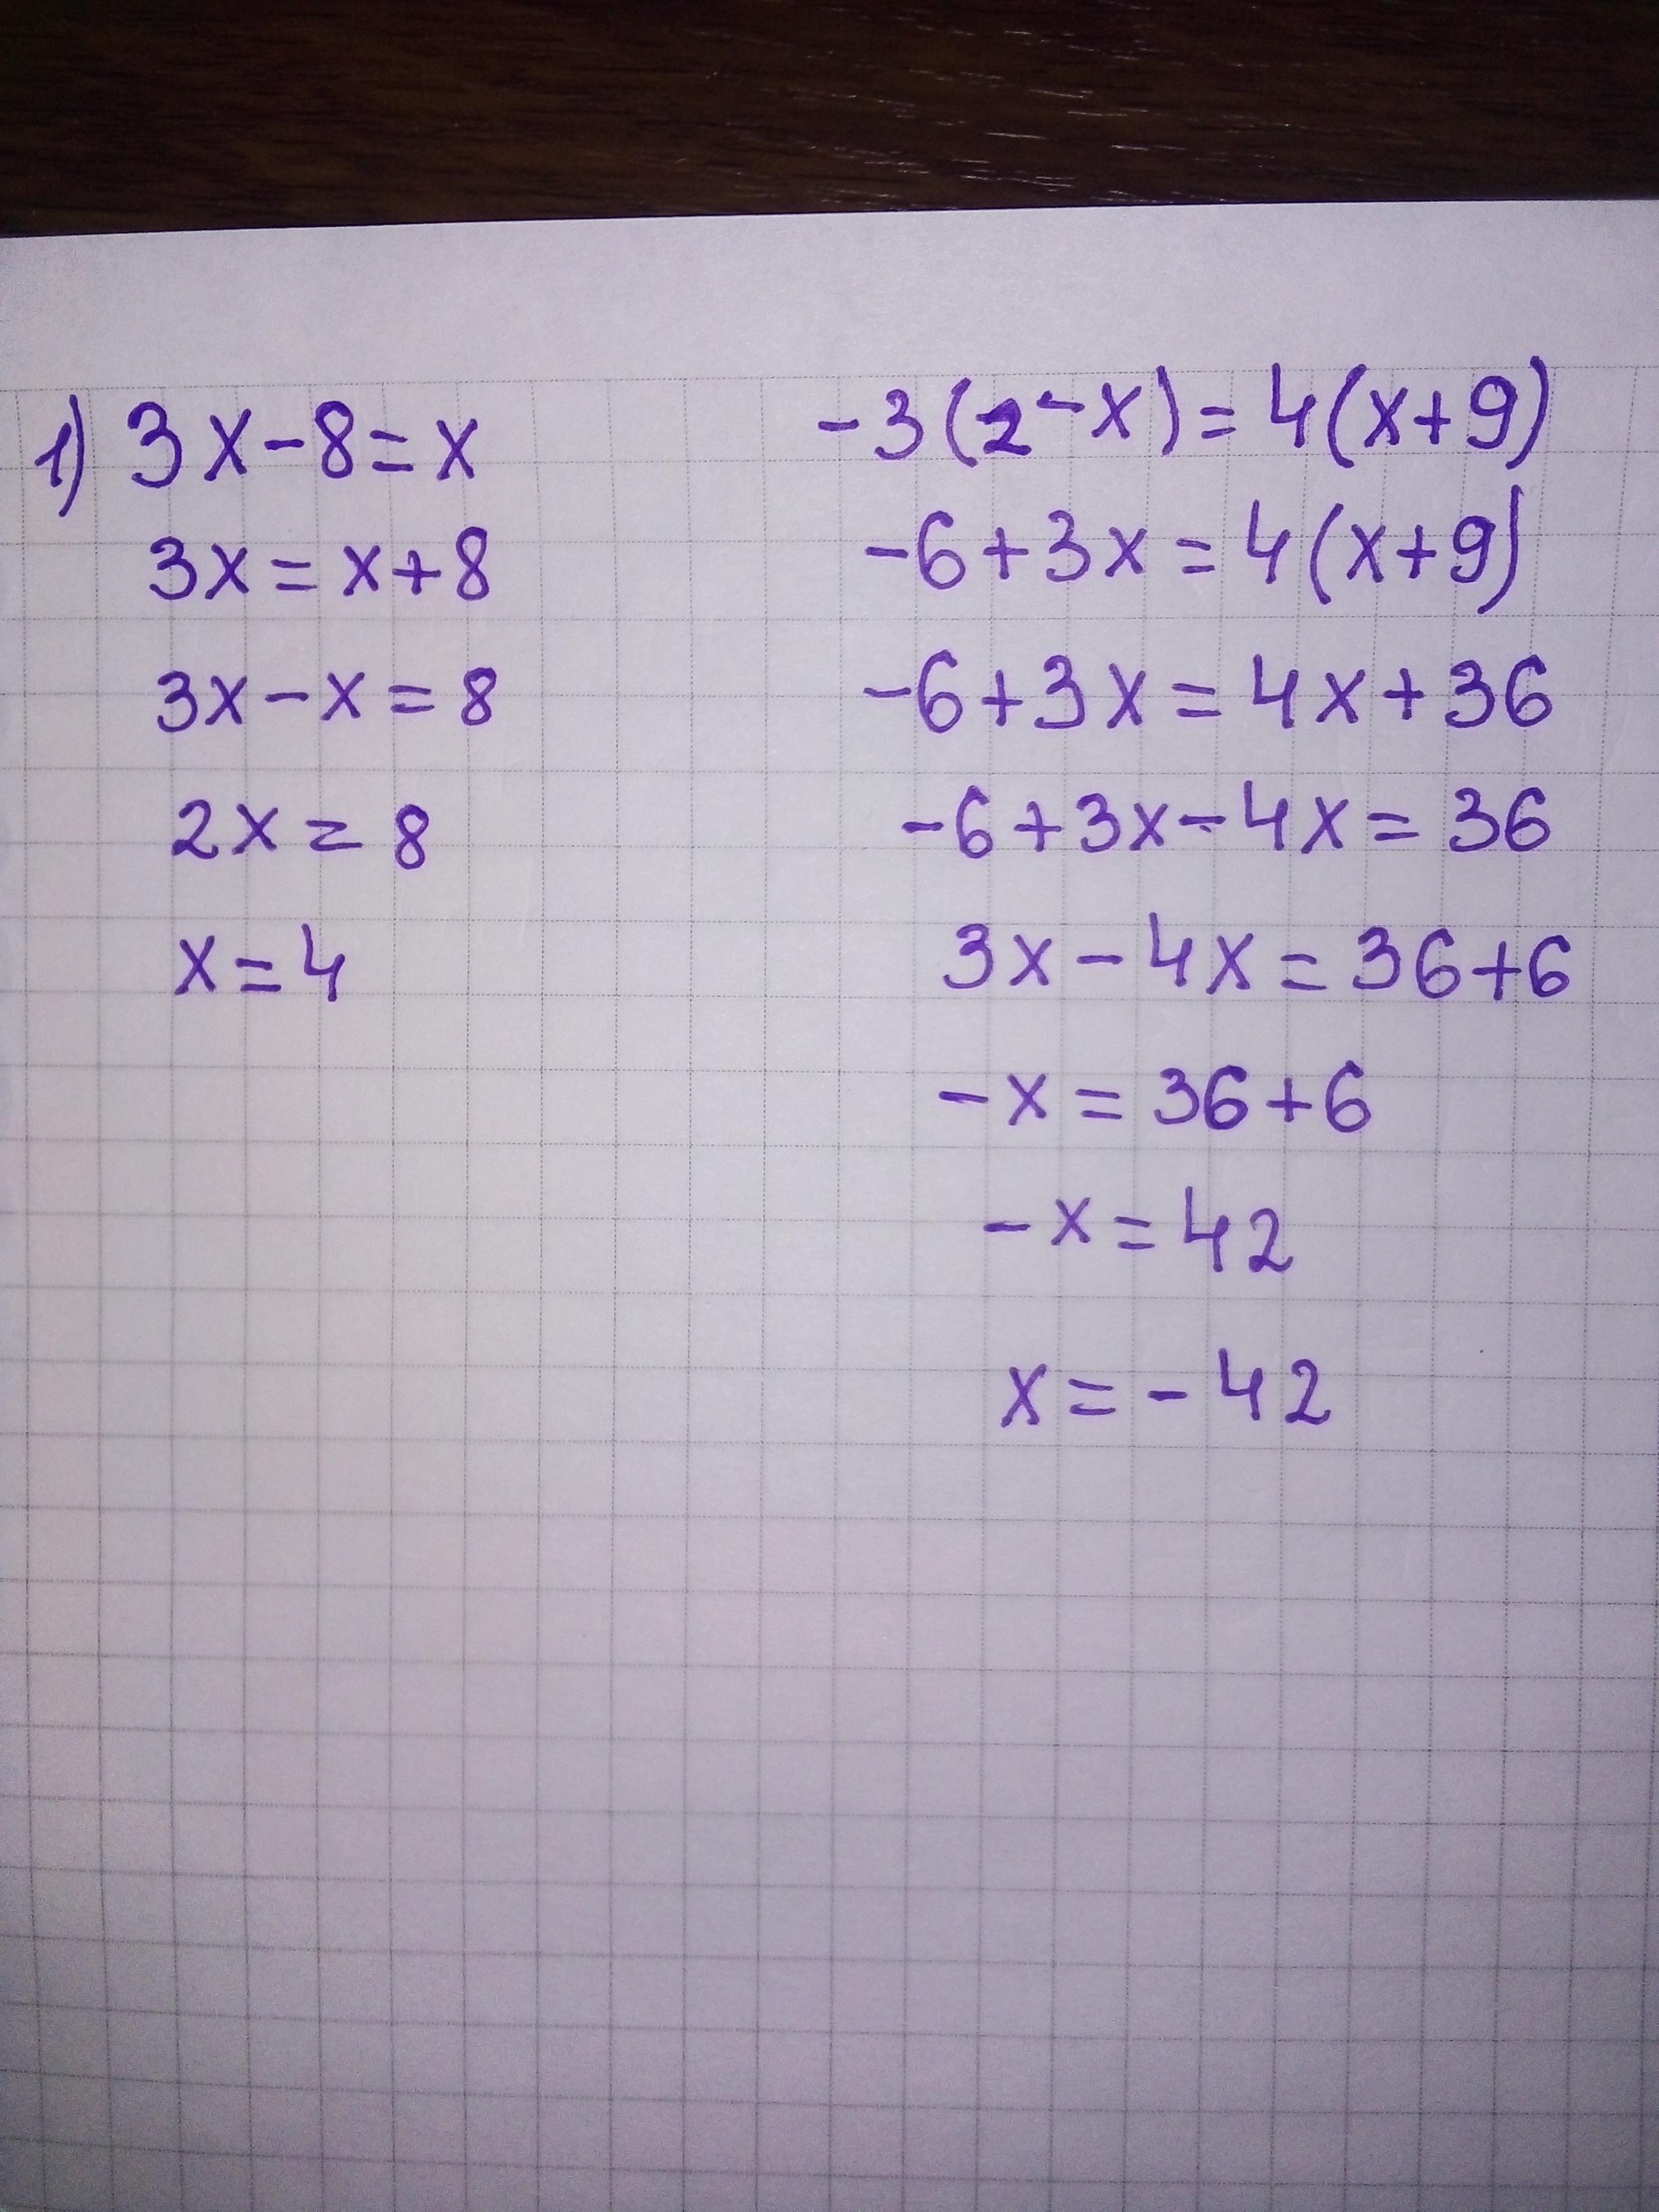 1) 3x-8=x
3x=x+8
3x-x=8
2x=8
x=4
-3(2-x)=4(x+9)
-6+3x=4(x+9)
-6+3x=4x+36
-6+3x-4x=36
3x-4x=36+6
-x=36+6
-x=42
x=-42